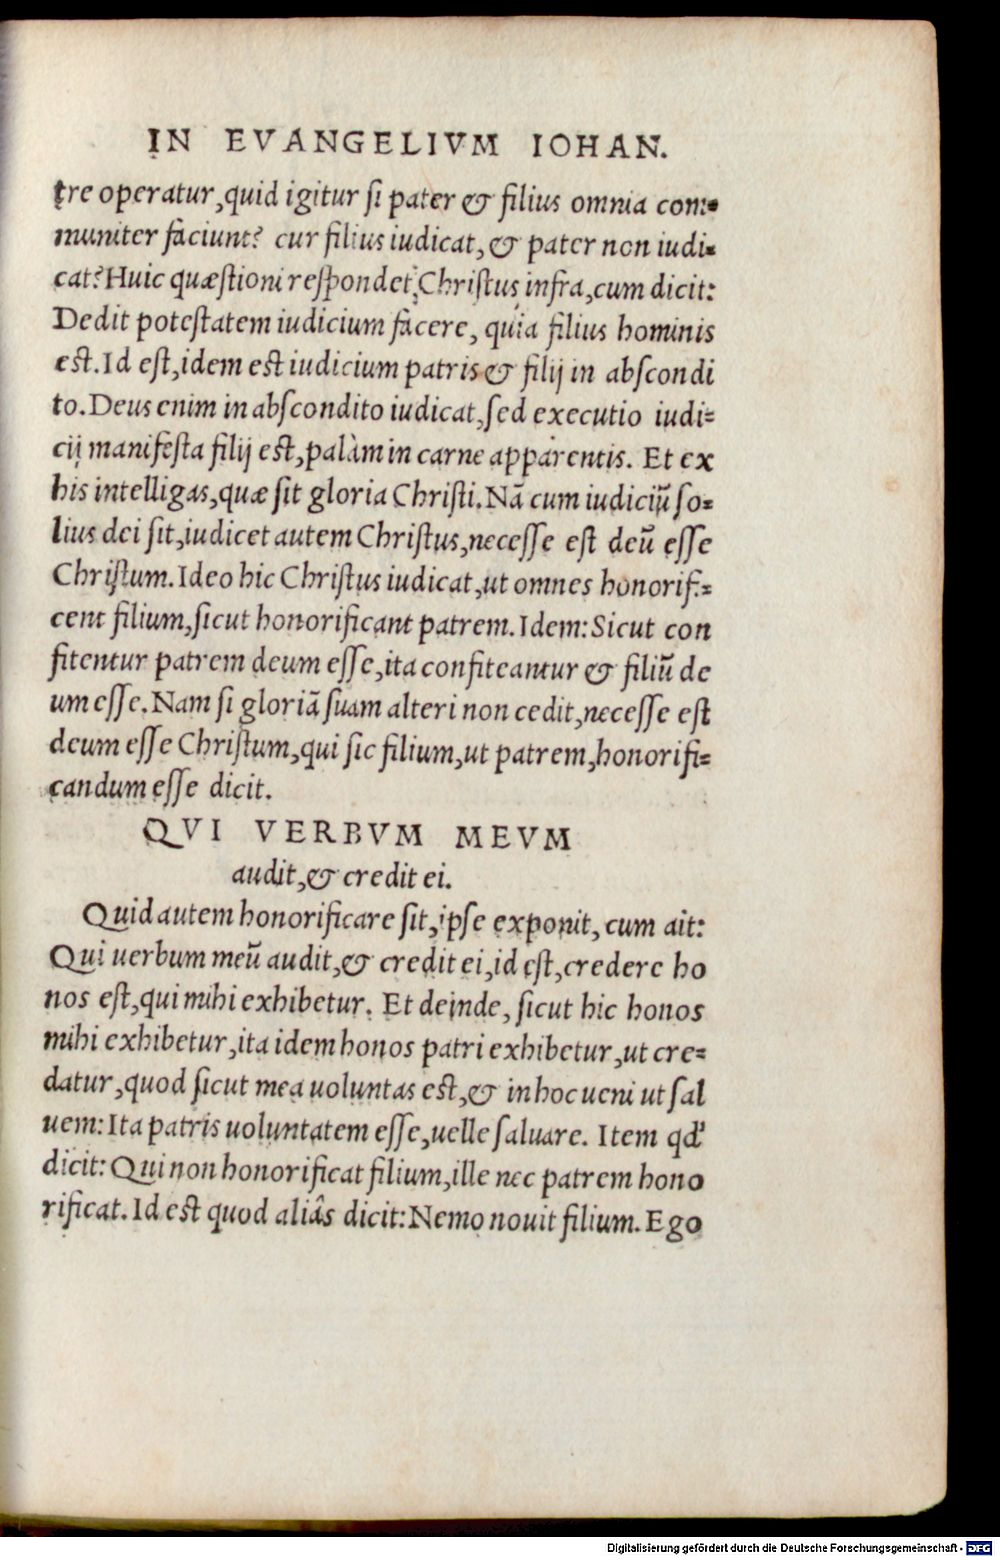 IN EVANGELIVM IOHAN.
tre operatur,quid igitur ſi pater & filius omnia com=
muniter faciunt? cur filius iudicat,& pater non iudi=
cat?Huic quæſtioni reſpondet Chriſtus infra,cum dicit:
Dedit poteſtatem iudicium facere, quia filius hominis
eſt.Id eſt,idem eſt iudicium patris & filij in abſcondi
to.Deus enim in abſcondito iudicat,ſed executio iudi=
cij manifeſta filij eſt,palàm in carne apparentis. Et ex
his intelligas,quæ ſit gloria Chriſti.Nã cum iudiciũ ſo=
lius dei ſit,iudicet autem Chriſtus,neceſſe eſt deũ eſſe
Chriſtum.Ideo hic Chriſtus iudicat,ut omnes honorifi=
cent filium,ſicut honorificant patrem.Idem:Sicut con
fitentur patrem deum eſſe,ita confiteantur & filiũ de
um eſſe.Nam ſi gloriã ſuam alteri non cedit,neceſſe eſt
deum eſſe Chriſtum,qui ſic filium,ut patrem,honorifi=
candum eſſe dicit.
QVI VERBVM MEVM
audit,& credit ei.
Quid autem honorificare ſit,ipſe exponit, cum ait:
Qui uerbum meũ audit,& credit ei,id eſt,credere ho
nos eſt,qui mihi exhibetur. Et deinde, ſicut hic honos
mihi exhibetur,ita idem honos patri exhibetur,ut cre=
datur,quod ſicut mea uoluntas eſt,& in hoc ueni ut ſal
uem:Ita patris uoluntatem eſſe,uelle ſaluare. Item qd'
dicit:Qui non honorificat filium,ille nec patrem hono
rificat.Id eſt quod aliâs dicit:Nemo nouit filium.Ego
Digitalisierung gefördert durch die Deutsche Forschungsgemeinschaft - DFG